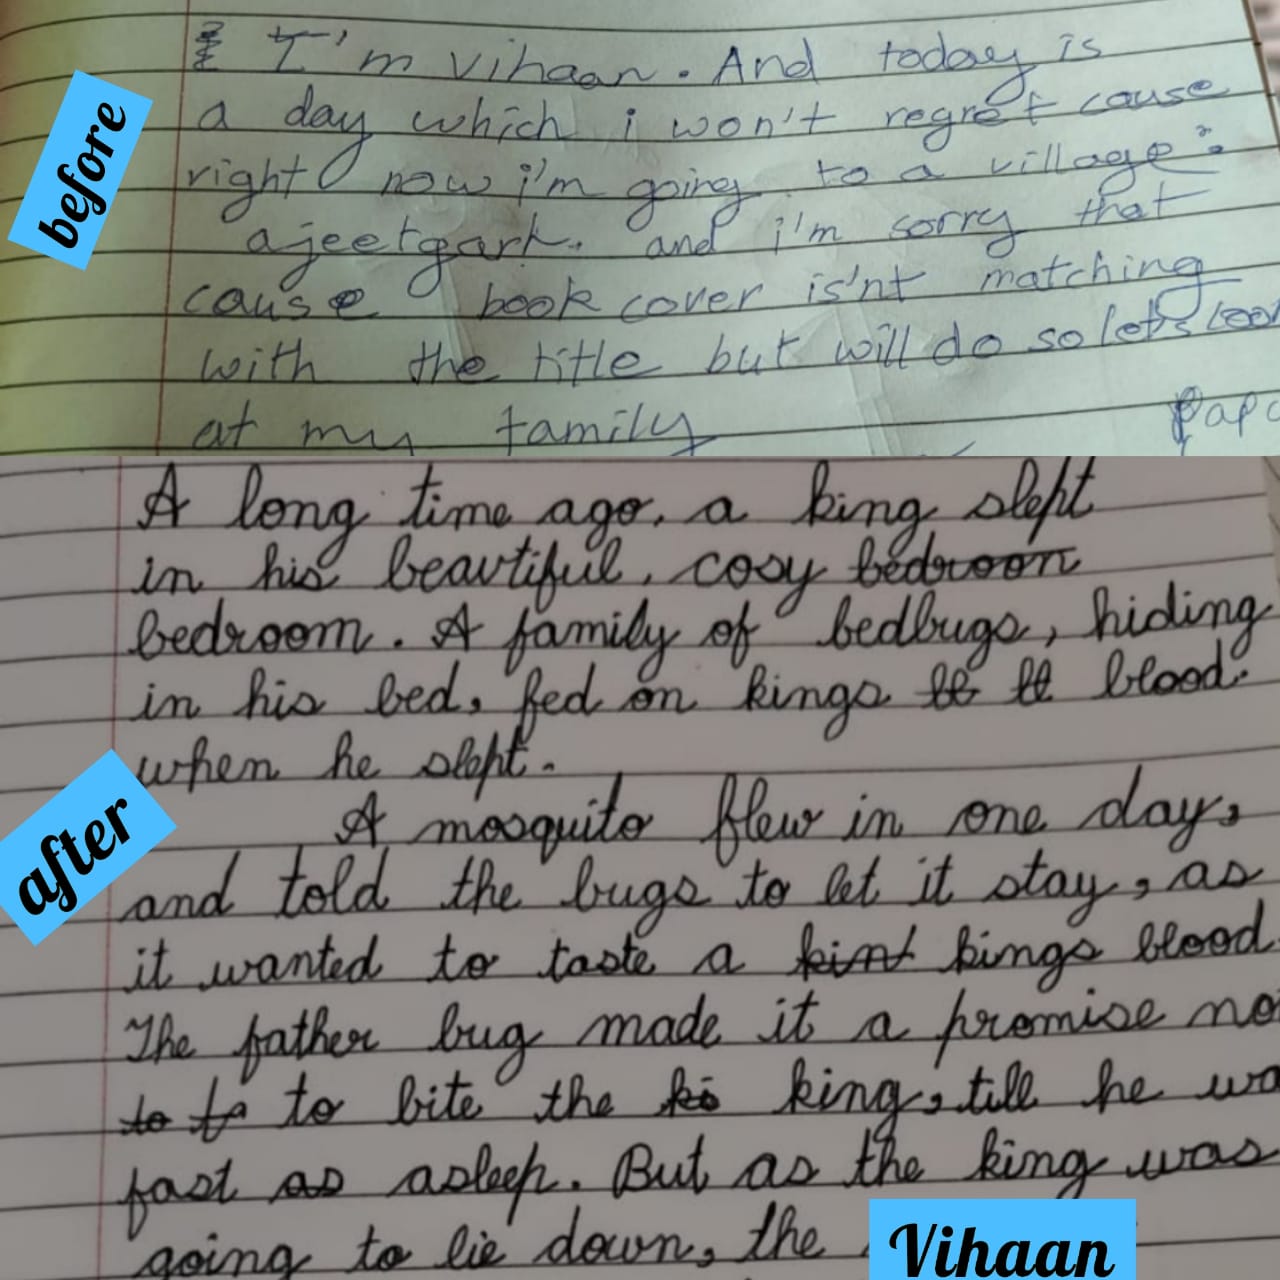 I'm vihaan. And today is
a day which i won't regret cause
right now i'm going to a village:
ajeetgarh. and i'm sorry that
cause book cover is'nt matching
with the title but will do so let's look
at my family
Papa
before
A long time ago, a king slept
in his beautiful, cosy bedroon
bedroom. A family of bedbugs, hiding
in his bed, fed on kings blood.
when he slept.
A mosquito flew in one day,
and told the bugs to let it stay, as
it wanted to taste a kint kings blood.
The father bug made it a promise no
to to to bite the ki king, till he wa
fast as asleep. But as the king was
going to lie down, the
after
Vihaan